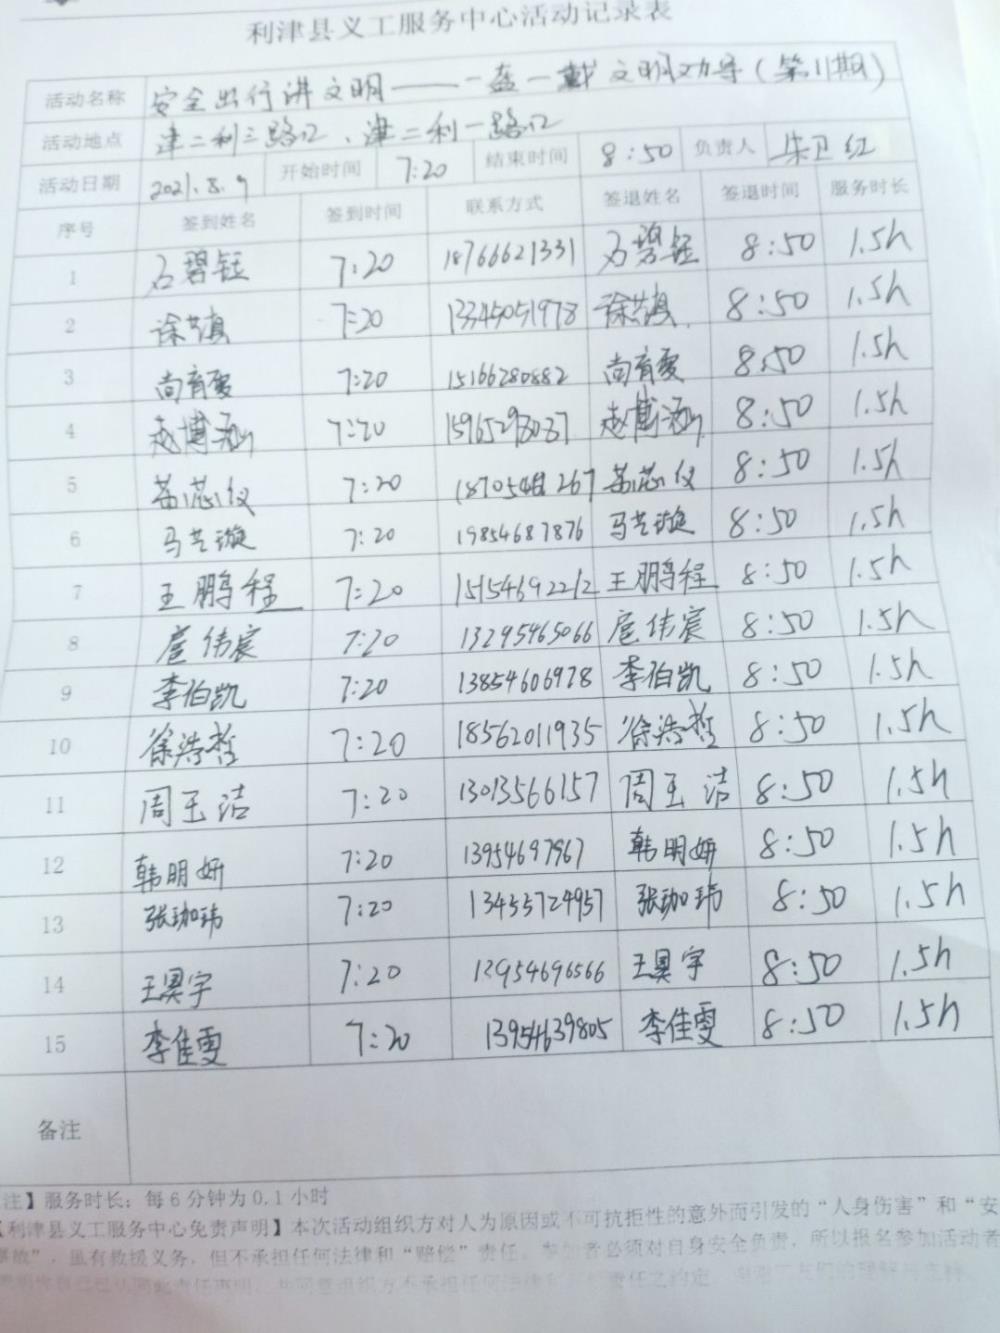 利津县义工服务中心活动记录表
活动名称 安全出行讲文明——一盔一戴文明劝导(第11期)
活动地点 津二利三路口、津二利一路口
活动日期 2021.8.9 开始时间 7:20 结束时间 8:50 负责人 朱卫红
序号 签到姓名 签到时间 联系方式 签退姓名 签退时间 服务时长
1 石碧钰 7:20 18766621331 石碧钰 8:50 1.5h
2 徐艺真 7:20 13345051978 徐艺真 8:50 1.5h
3 尚育雯 7:20 15166280882 尚育雯 8:50 1.5h
4 赵博涵 7:20 赵博涵 8:50 1.5h
5 苗芯仪 7:20 苗芯仪 8:50 1.5h
6 马艺璇 7:20 19854687876 马艺璇 8:50 1.5h
7 王鹏程 7:20 15154692212 王鹏程 8:50 1.5h
8 扈伟宸 7:20 13295465066 扈伟宸 8:50 1.5h
9 李伯凯 7:20 13854606978 李伯凯 8:50 1.5h
10 徐浩哲 7:20 18562011935 徐浩哲 8:50 1.5h
11 周玉洁 7:20 13013566157 周玉洁 8:50 1.5h
12 韩明妍 7:20 13954697967 韩明妍 8:50 1.5h
13 张珈玮 7:20 13455724957 张珈玮 8:50 1.5h
14 王昊宇 7:20 13954696566 王昊宇 8:50 1.5h
15 李佳雯 7:20 13954639805 李佳雯 8:50 1.5h
备注
注】服务时长:每6分钟为0.1小时
【利津县义工服务中心免责声明】本次活动组织方对人为原因或不可抗拒性的意外而引发的“人身伤害”和“安
事故”,虽有救援义务,但不承担任何法律和“赔偿”责任。参加者必须对自身安全负责,所以报名参加活动者
责任声明,共同意组织方不承担任何法律和 责任之约定。